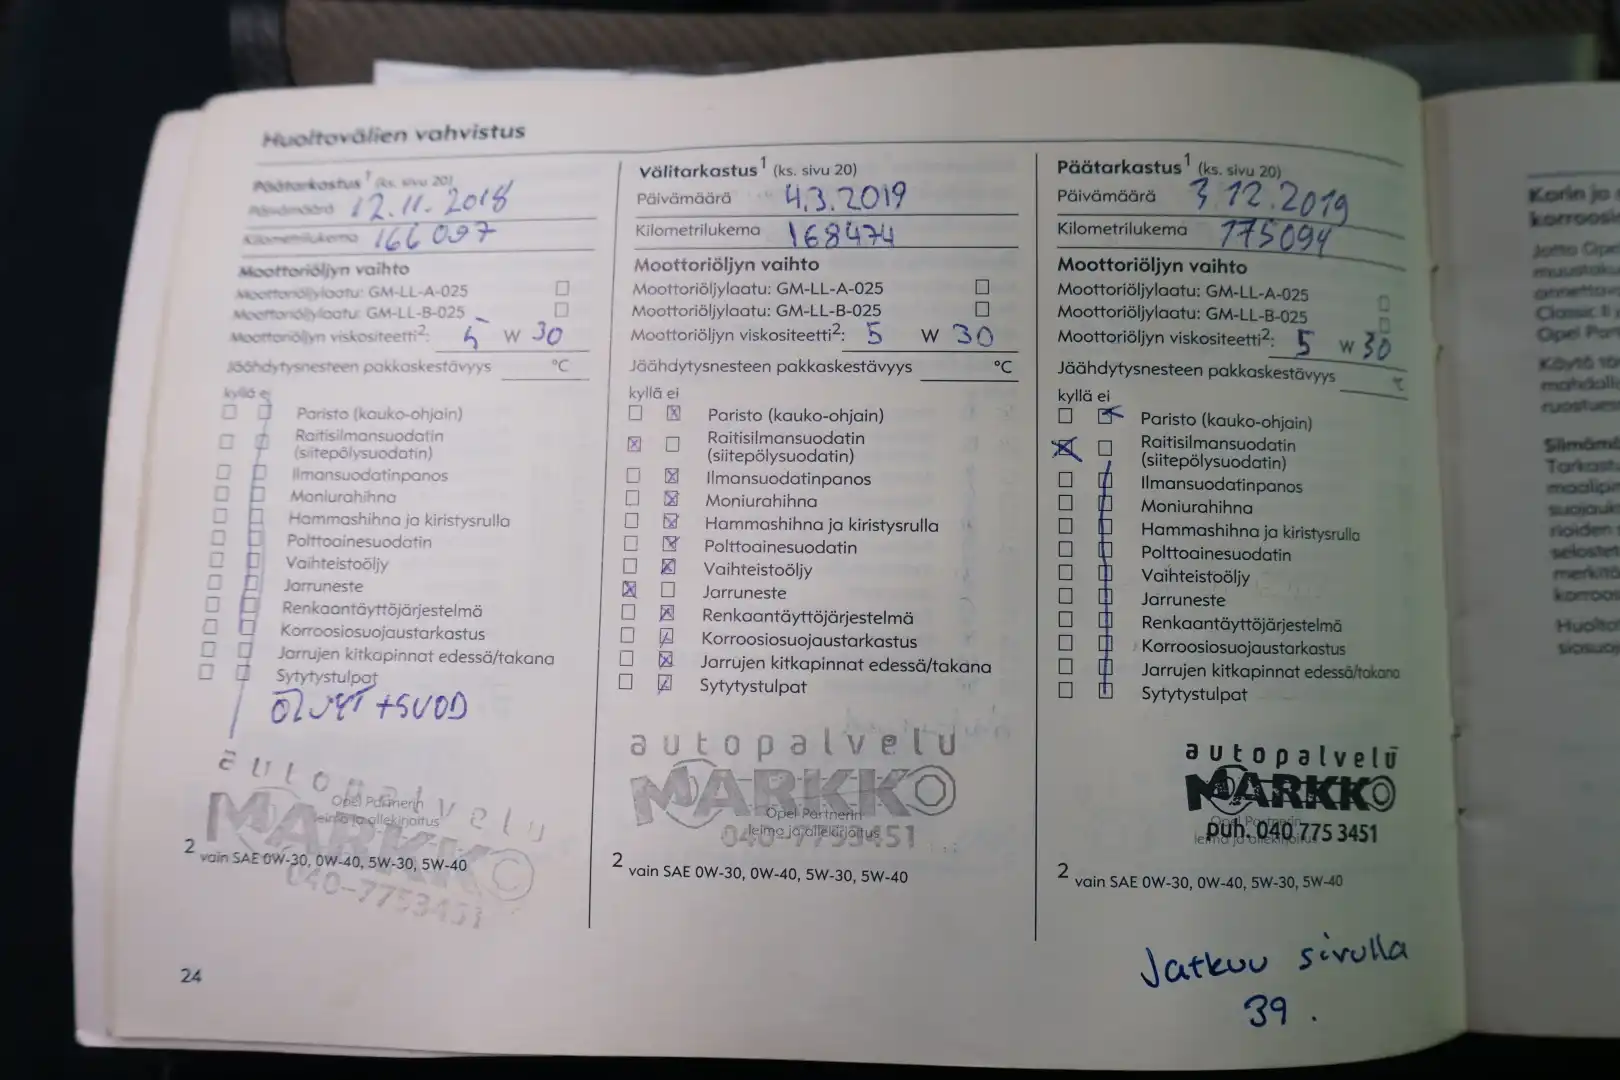 Huoltovälien vahvistus
Päätarkastus¹ (ks. sivu 20)
Päivämäärä 12.11.2018
Kilometrilukema 166097
Moottoriöljyn vaihto
Moottoriöljylaatu: GM-LL-A-025
Moottoriöljylaatu: GM-LL-B-025
Moottoriöljyn viskositeetti²: 5 W 30
Jäähdytysnesteen pakkaskestävyys °C
kyllä ei
Paristo (kauko-ohjain)
Raitisilmansuodatin
(siitepölysuodatin)
Ilmansuodatinpanos
Moniurahihna
Hammashihna ja kiristysrulla
Polttoainesuodatin
Vaihteistoöljy
Jarruneste
Renkaantäyttöjärjestelmä
Korroosiosuojaustarkastus
Jarrujen kitkapinnat edessä/takana
Sytytystulpat
ÖLJYT +SUOD
autopalvelu
MARKKO
Opel Partnerin
leima ja allekirjoitus
040-7753451
² vain SAE 0W-30, 0W-40, 5W-30, 5W-40
24
Välitarkastus¹ (ks. sivu 20)
Päivämäärä 4.3.2019
Kilometrilukema 168474
Moottoriöljyn vaihto
Moottoriöljylaatu: GM-LL-A-025
Moottoriöljylaatu: GM-LL-B-025
Moottoriöljyn viskositeetti²: 5 W 30
Jäähdytysnesteen pakkaskestävyys °C
kyllä ei
Paristo (kauko-ohjain)
Raitisilmansuodatin
(siitepölysuodatin)
Ilmansuodatinpanos
Moniurahihna
Hammashihna ja kiristysrulla
Polttoainesuodatin
Vaihteistoöljy
Jarruneste
Renkaantäyttöjärjestelmä
Korroosiosuojaustarkastus
Jarrujen kitkapinnat edessä/takana
Sytytystulpat
autopalvelu
MARKKO
Opel Partnerin
leima ja allekirjoitus
040-7753451
² vain SAE 0W-30, 0W-40, 5W-30, 5W-40
Päätarkastus¹ (ks. sivu 20)
Päivämäärä 3.12.2019
Kilometrilukema 175094
Moottoriöljyn vaihto
Moottoriöljylaatu: GM-LL-A-025
Moottoriöljylaatu: GM-LL-B-025
Moottoriöljyn viskositeetti²: 5 W 30
Jäähdytysnesteen pakkaskestävyys °C
kyllä ei
Paristo (kauko-ohjain)
Raitisilmansuodatin
(siitepölysuodatin)
Ilmansuodatinpanos
Moniurahihna
Hammashihna ja kiristysrulla
Polttoainesuodatin
Vaihteistoöljy
Jarruneste
Renkaantäyttöjärjestelmä
Korroosiosuojaustarkastus
Jarrujen kitkapinnat edessä/takana
Sytytystulpat
autopalvelu
MARKKO
Opel Partnerin
leima ja allekirjoitus
puh. 040 775 3451
² vain SAE 0W-30, 0W-40, 5W-30, 5W-40
Jatkuu sivulla
39.
Korin ja
Jotta Opel
Classic II
Opel
Käytö